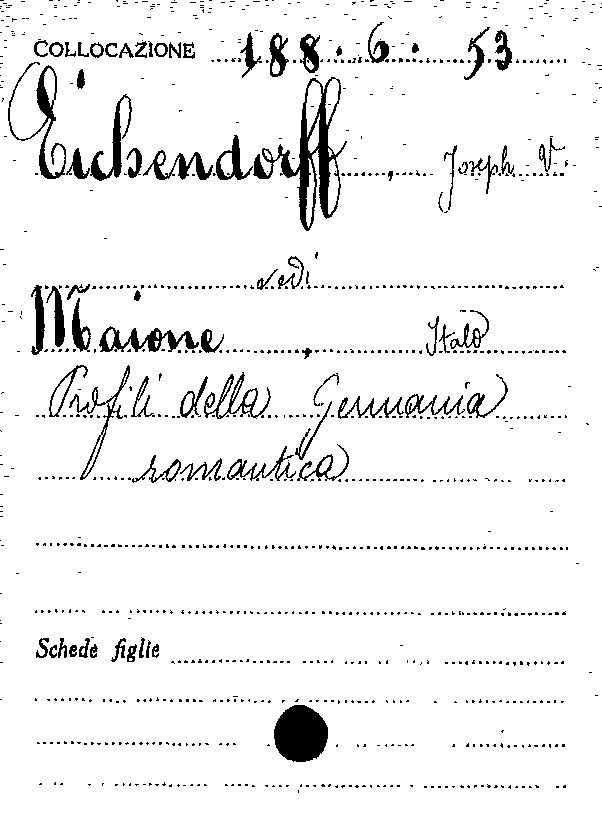 COLLOCAZIONE 188. 6. 53
Eichendorff, Joseph V.
vedi
Maione, Italo
Profili della Germania
romantica
Schede figlie